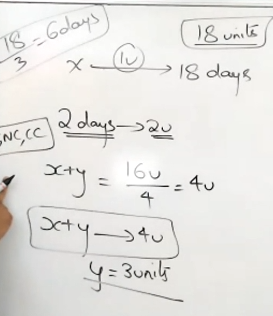 18/3 = 6days
18 units
x —1u→ 18 days
2 days → 2u
NC, CC
x+y = 16u/4 = 4u
x+y → 4u
y = 3units